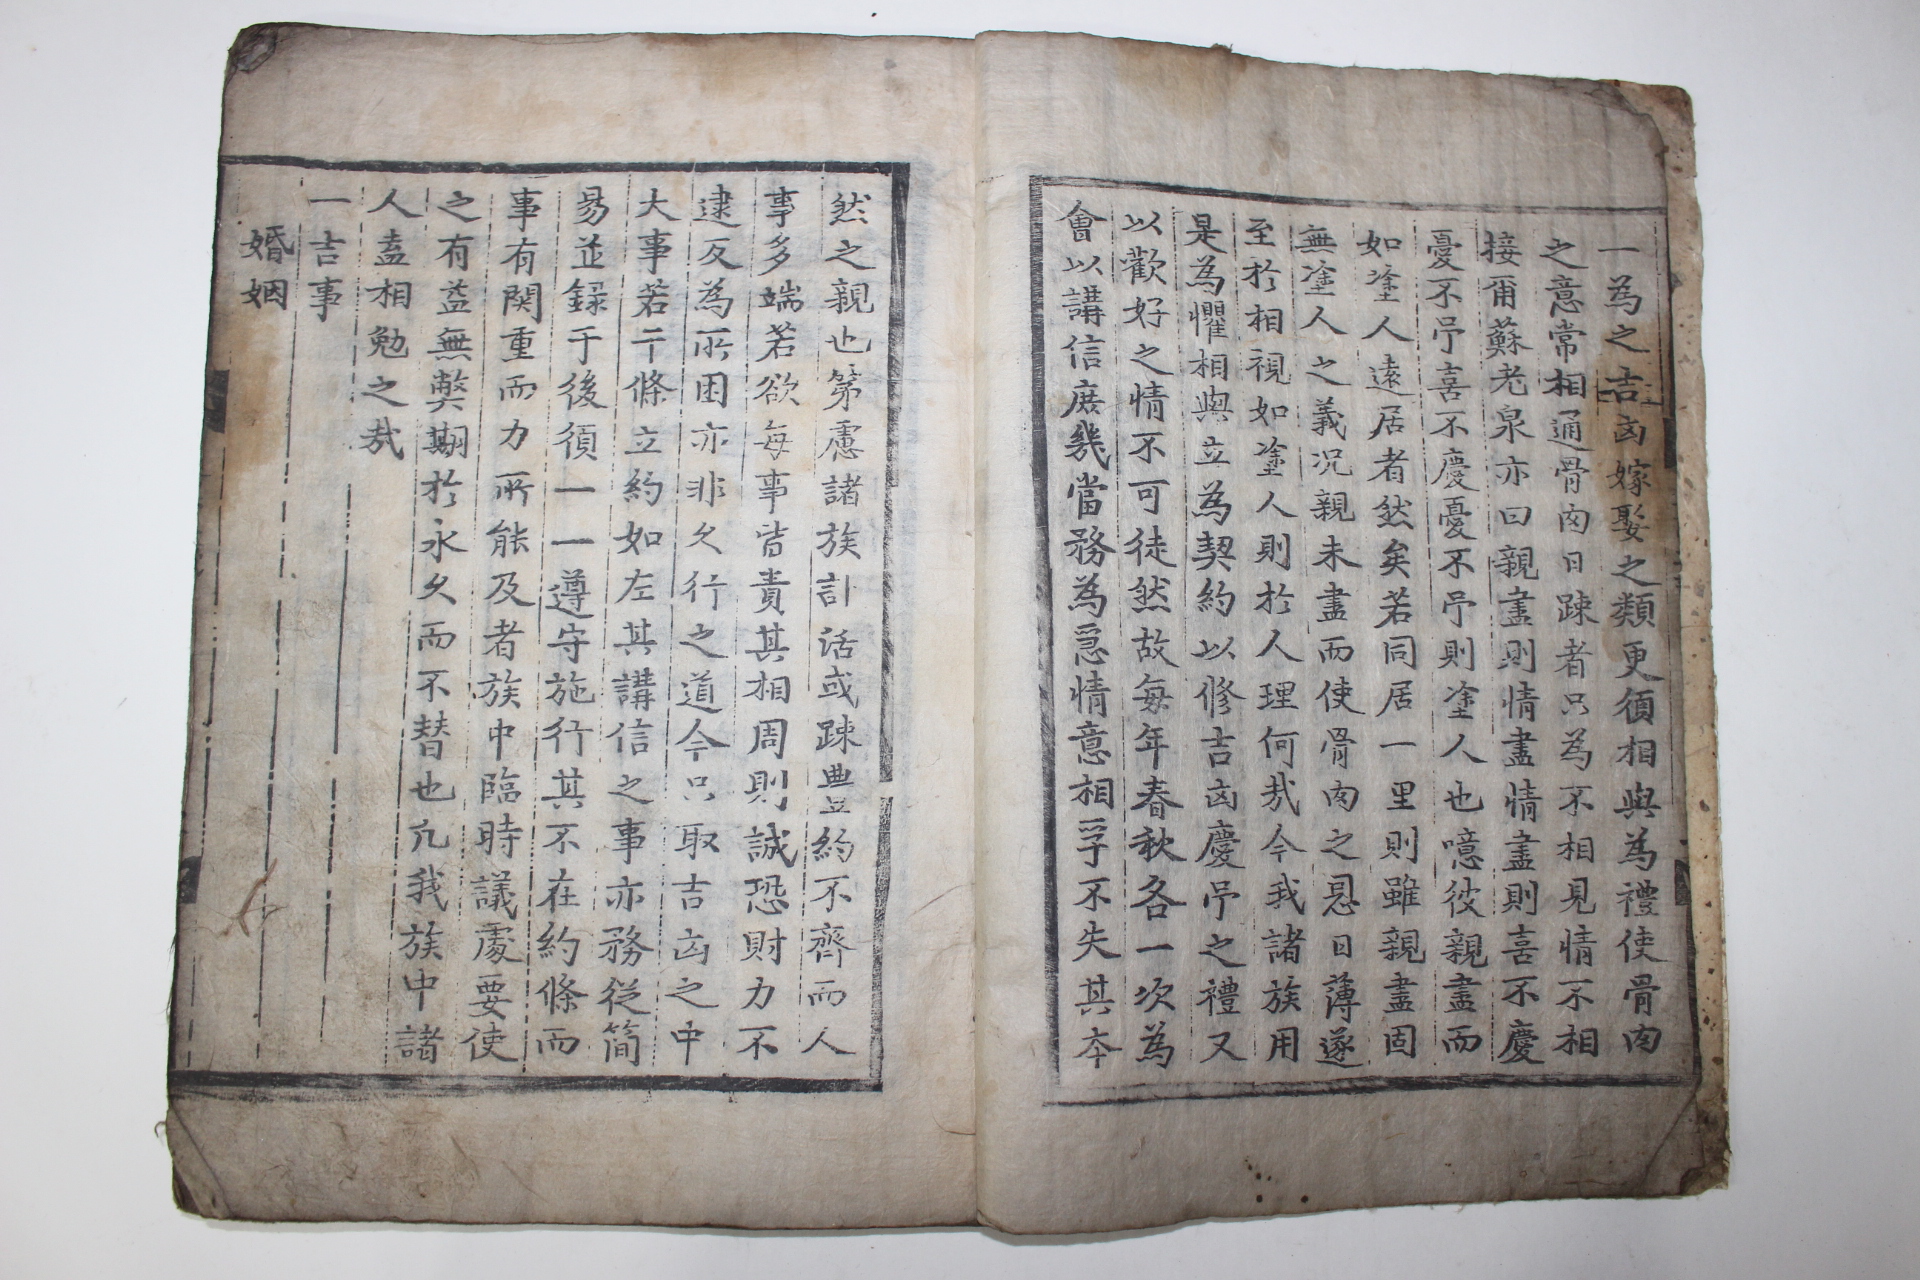 一為之吉凶嫁娶之類更須相與為禮使骨肉
之意常相通骨肉日踈者只為不相見情不相
接爾蘇老泉亦曰親盡則情盡情盡則喜不慶
憂不吊喜不慶憂不吊則塗人也噫彼親盡而
如塗人遠居者然矣若同居一里則雖親盡固
無塗人之義况親未盡而使骨肉之恩日薄遂
至於相視如塗人則於人理何㢤今我諸族用
是為懼相與立為契約以修吉凶慶吊之禮又
以歡好之情不可徒然故每年春秋各一次為
會以講信庶幾當務為恩情意相孚不失其夲
然之親也第慮諸族計活或踈豊約不齊而人
事多端若欲每事皆責其相周則誠恐財力不
逮反為所困亦非久行之道今只取吉凶之中
大事若干條立約如左其講信之事亦務從簡
易並録于後須一一遵守施行其不在約條而
事有関重而力所能及者族中臨時議處要使
之有益無獘期於永久而不替也凢我族中諸
人盍相勉之㢤
一吉事
婚姻